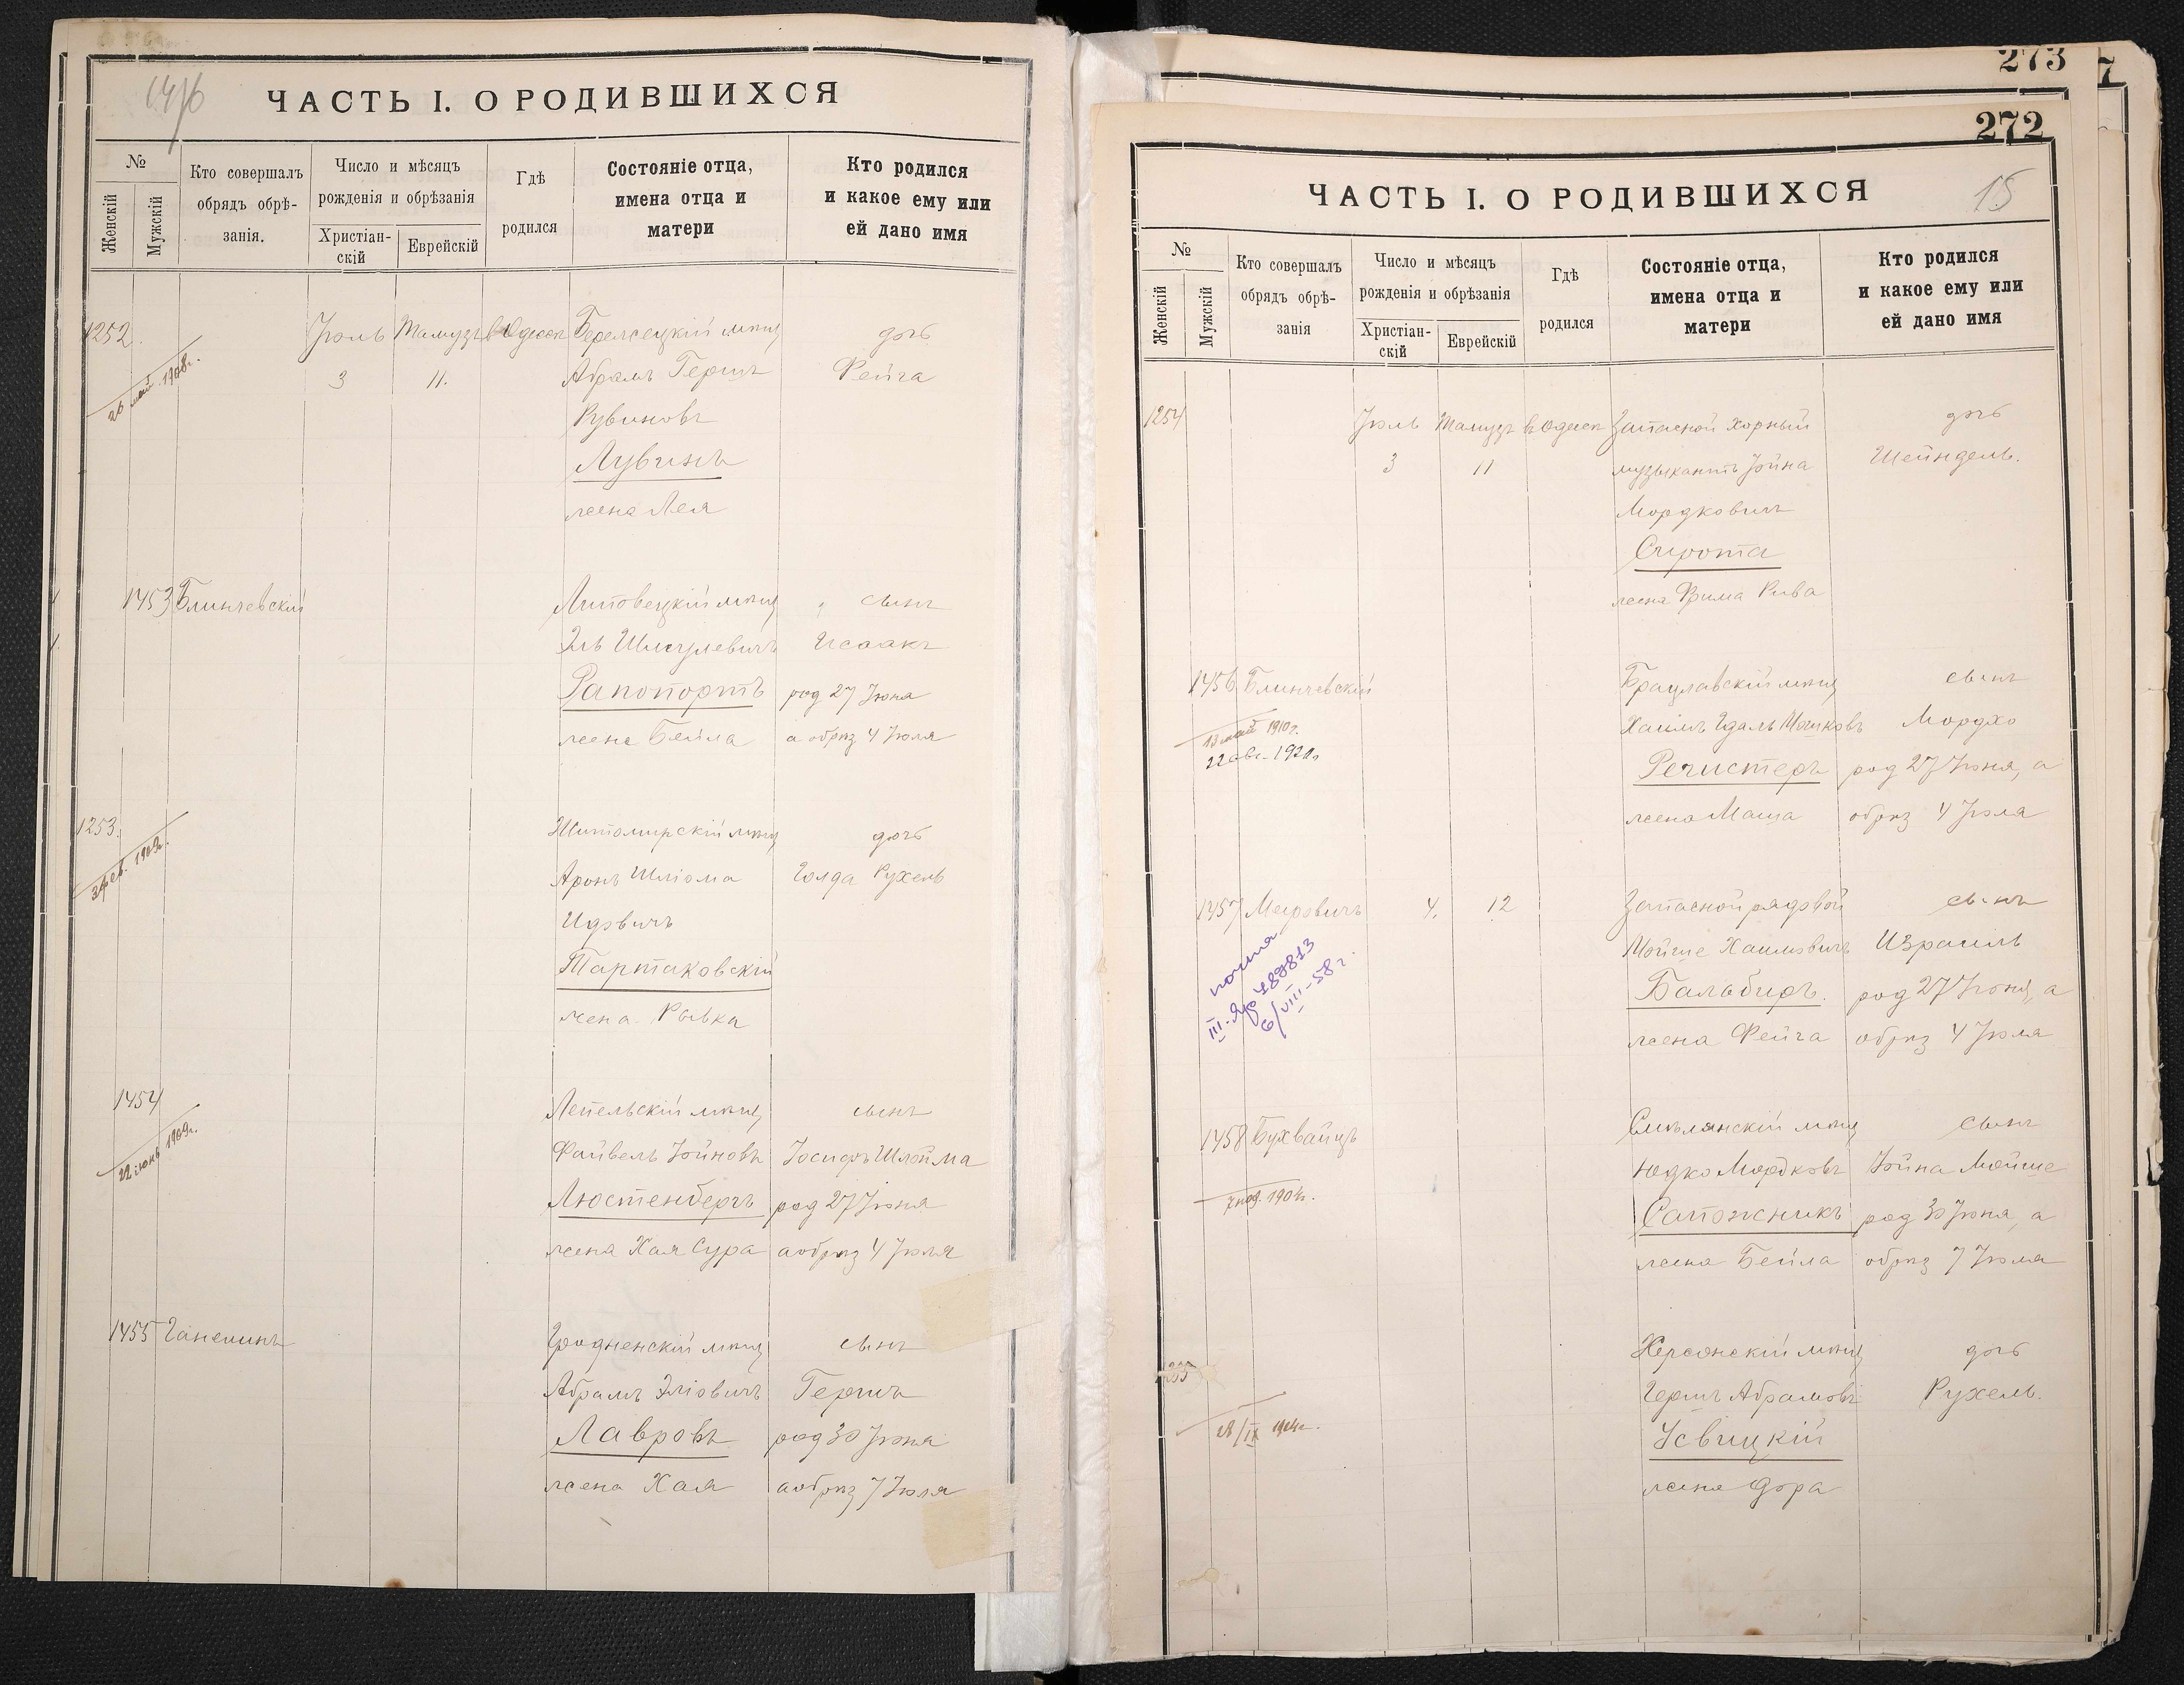 ЧАСТЬ I. О РОДИВШИХСЯ
№
Женскій
Мужскій
Кто совершалъ
обрядъ обрѣ-
занія.
Число и мѣсяцъ
рожденія и обрѣзанія
Христіан-
скій
Еврейскій
Гдѣ
родился
Состояніе отца,
имена отца и
матери
Кто родился
и какое ему или
ей дано имя
1252. Іюль Тамузъ в Одессѣ мѣщ дочь
26 май 1908г.
3 11. Абрамъ Гершъ Фейга
Рувиновъ
Лувичъ
жена Лея
1453 Блинчевскій Липовецкій мѣщ сынъ
Эль Шмулевичъ Исаакъ
Рапопортъ род 27 Іюня
жена Бейла а обрѣз 4 Іюля
1253. Житомирскій мѣщ дочь
3 фев. 1909г.
Аронъ Шліома Голда Рухель
Идовичъ
Тартаковскій
жена Ривка
1454 Лепельскій мѣщ сынъ
22 іюнь 1909г.
Файвель Іойновъ Іосифъ Шлойма
Люстенбергъ род 27 Іюня
жена Хая Сура а обрѣз 4 Іюля
1455 Ганелинъ Гродненскій мѣщ сынъ
Абрамъ Эліовичъ Гершъ
Лавровъ род 30 Іюня
жена Хая а обрѣз 7 Іюля
273
7
272
ЧАСТЬ I. О РОДИВШИХСЯ
15
№
Женскій
Мужскій
Кто совершалъ
обрядъ обрѣ-
занія
Число и мѣсяцъ
рожденія и обрѣзанія
Христіан-
скій
Еврейскій
Гдѣ
родился
Состояніе отца,
имена отца и
матери
Кто родился
и какое ему или
ей дано имя
1254 Іюль Тамузъ в Одессѣ Запасной хорный дочь
3 11 музыкантъ Іойна Шейндель.
Мордковичъ
Сирота
жена Фрима Рива
1456 Блинчевскій Брацлавскій мѣщ сынъ
13 май 1910г.
Хаимъ Идаль Мошковъ Мордхо
Регистеръ род 27 Іюня, а
жена Маша обрѣз 4 Іюля
1457 Меировичъ 4. 12 Запасной рядовой сынъ
почта
6/VIII-58г.
Мойше Хаимовичъ Израиль
Бальбиръ. род 27 Іюня, а
жена Фейга обрѣз 4 Іюля
1458 Бухвайцъ Смѣлянскій мѣщ сынъ
Юдко Мордковъ Іойна Мойше
Сапожникъ род 30 Іюня, а
жена Бейла обрѣз 7 Іюля
Херсонскій мѣщ дочь
Гершъ Абрамовъ Рухель.
Усвицкій
жена Дора